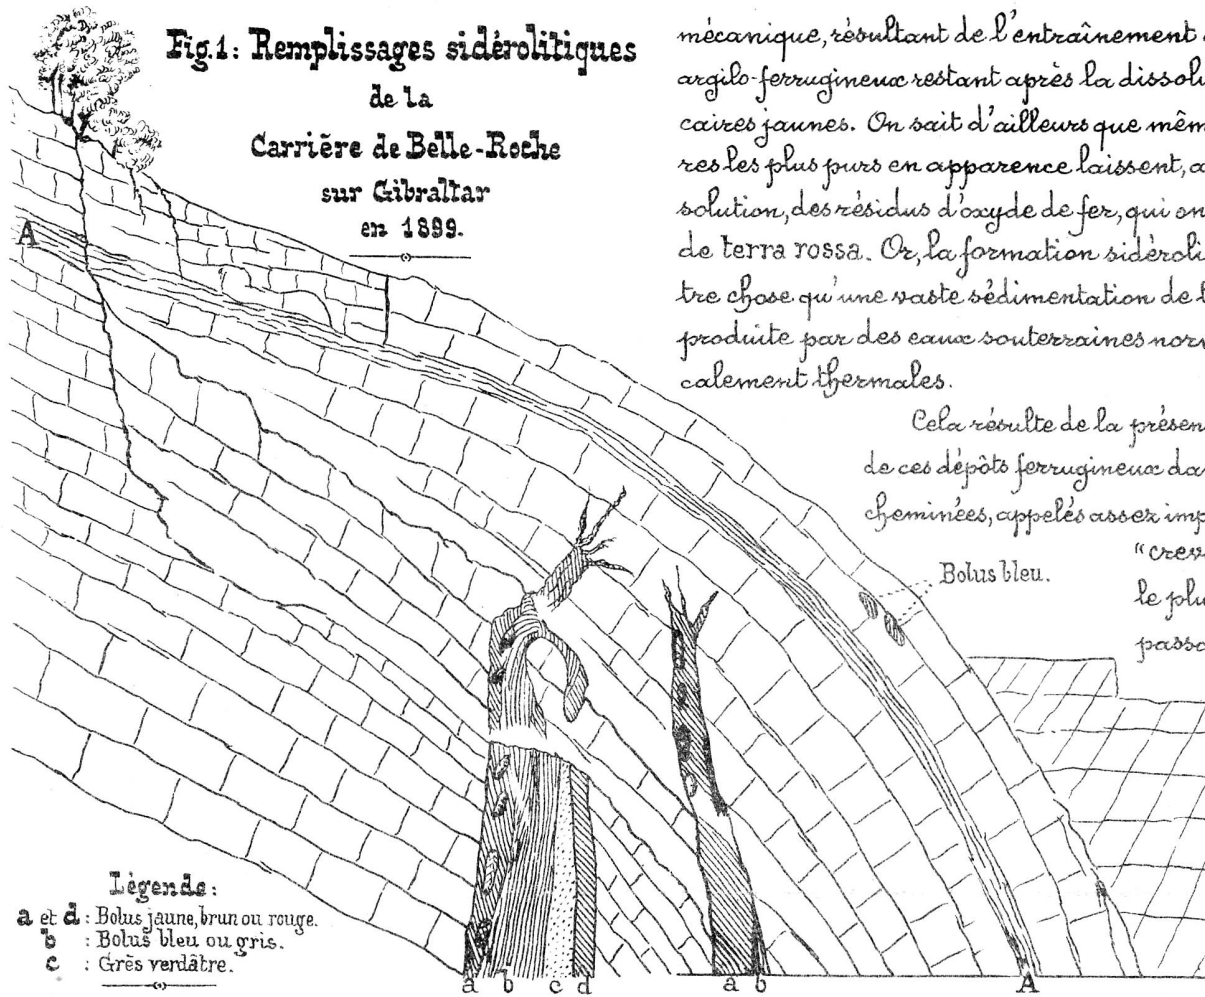 Fig.1: Remplissages sidérolitiques
de la
Carrière de Belle-Roche
sur Gibraltar
en 1899.
mécanique, résultant de l'entraînement
argilo-ferrugineux restant après la dissolu
caires jaunes. On sait d'ailleurs que mêm
res les plus purs en apparence laissent, a
solution, des résidus d'oxyde de fer, qui on
de terra rossa. Or, la formation sidéroli
tre chose qu'une vaste sédimentation de t
produite par des eaux souterraines norm
calement thermales.
Cela résulte de la présen
de ces dépôts ferrugineux da
cheminées, appelés assez imp
"crev
le plu
passa
A
Bolus bleu.
Légende:
a et d : Bolus jaune, brun ou rouge.
b : Bolus bleu ou gris.
c : Grès verdâtre.
a b c d a b A